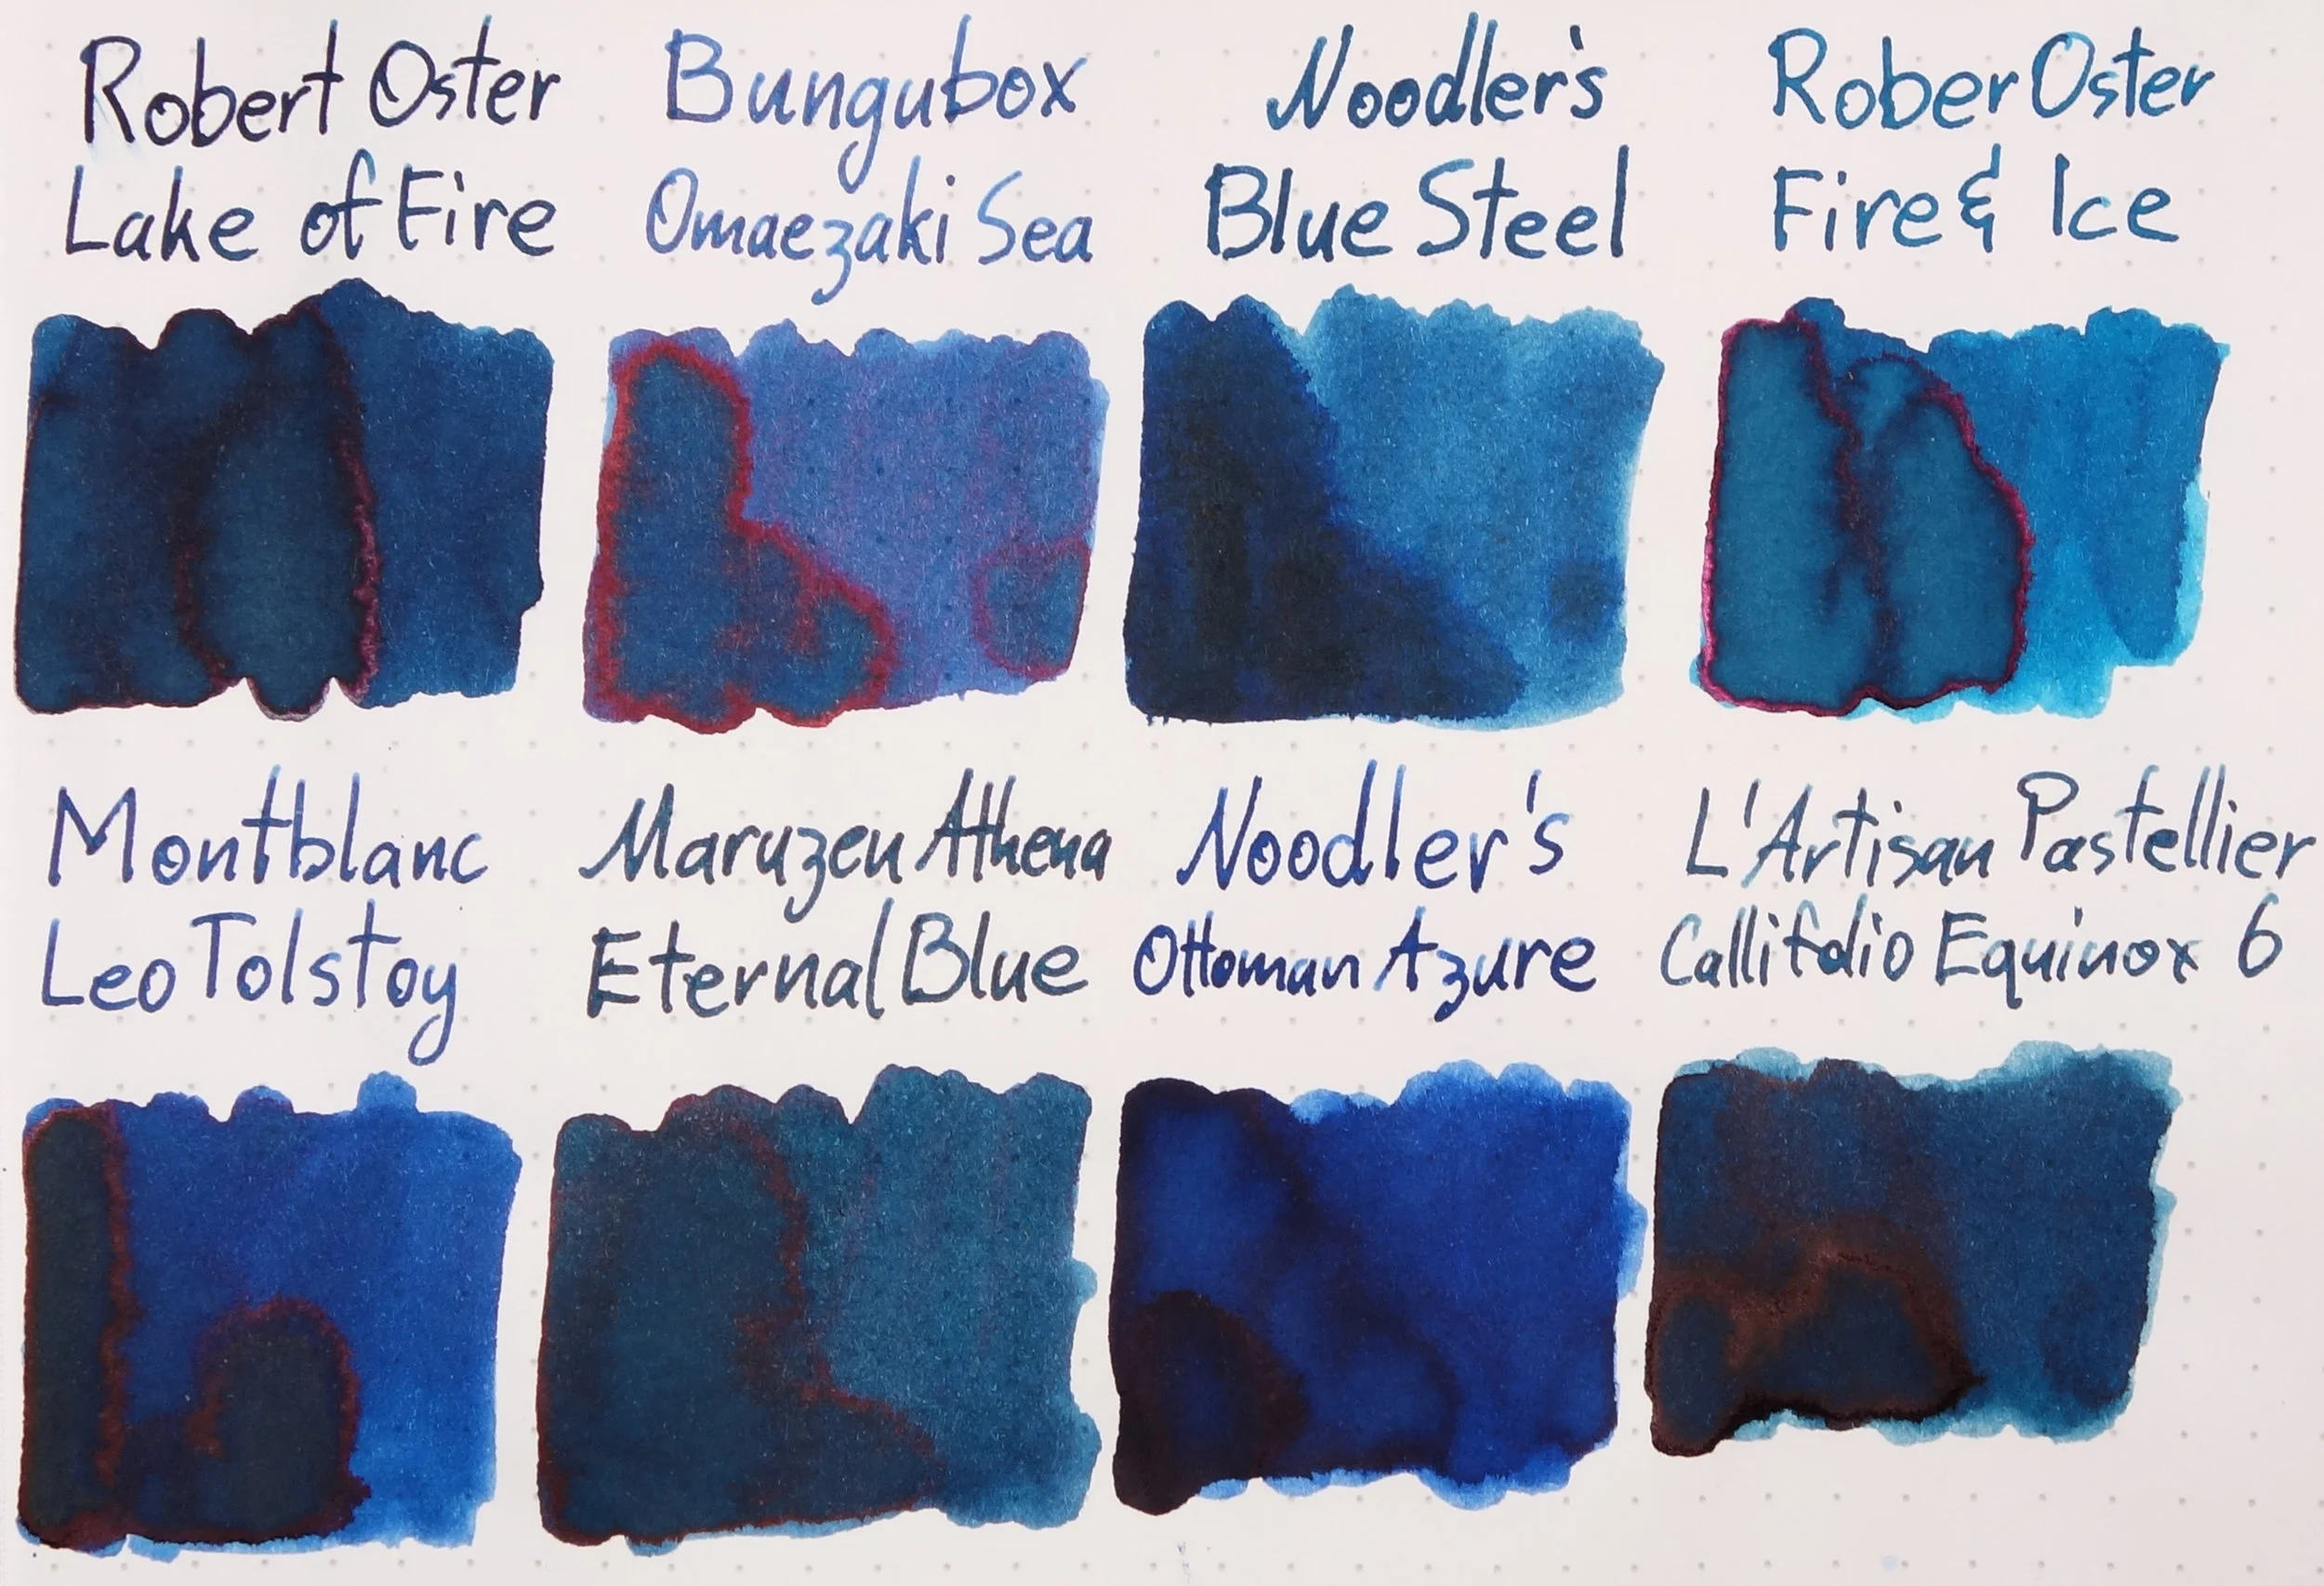 Robert Oster
Lake of Fire
Bungubox
Omaezaki Sea
Noodler's
Blue Steel
Rober Oster
Fire & Ice
Montblanc
Leo Tolstoy
Maruzen Athena
Eternal Blue
Noodler's
Ottoman Azure
L'Artisan Pastellier
Callifolio Equinox 6